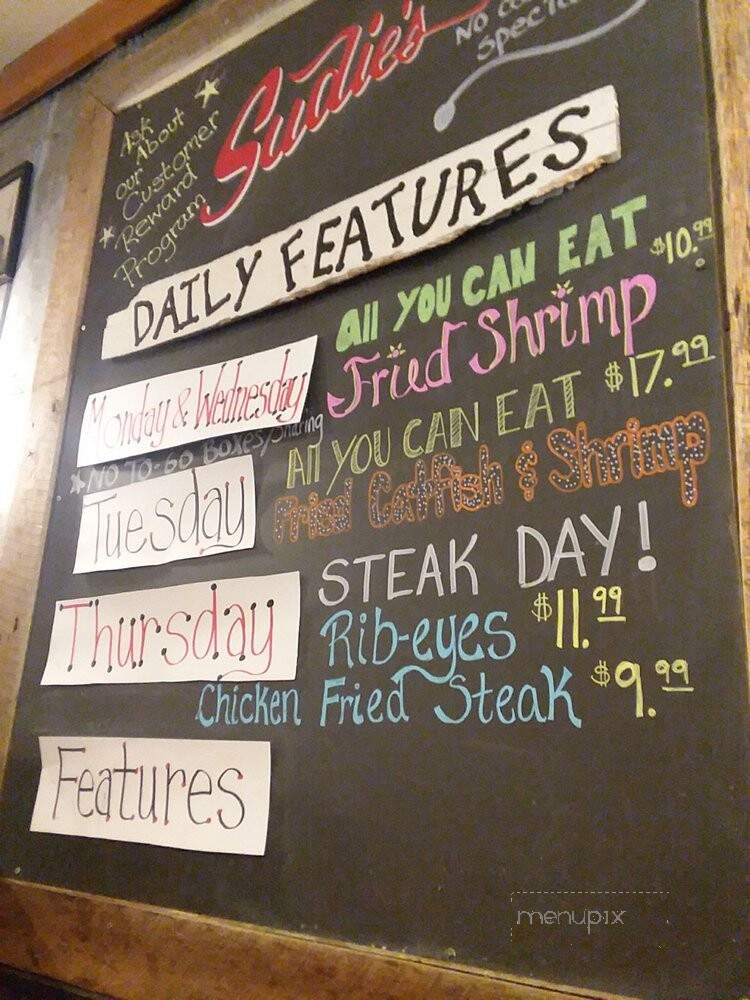 Ask
About
our
Customer
Reward
Program
Sudie's
No
Specia
DAILY FEATURES
Monday & Wednesday
all YOU CAN EAT $10.99
Fried Shrimp
NO TO-GO BOXES/Sharing
Tuesday
All YOU CAN EAT $17.99
Fried Catfish & Shrimp
Thursday
STEAK DAY!
Rib-eyes $11.99
Chicken Fried Steak $9.99
Features
menupix